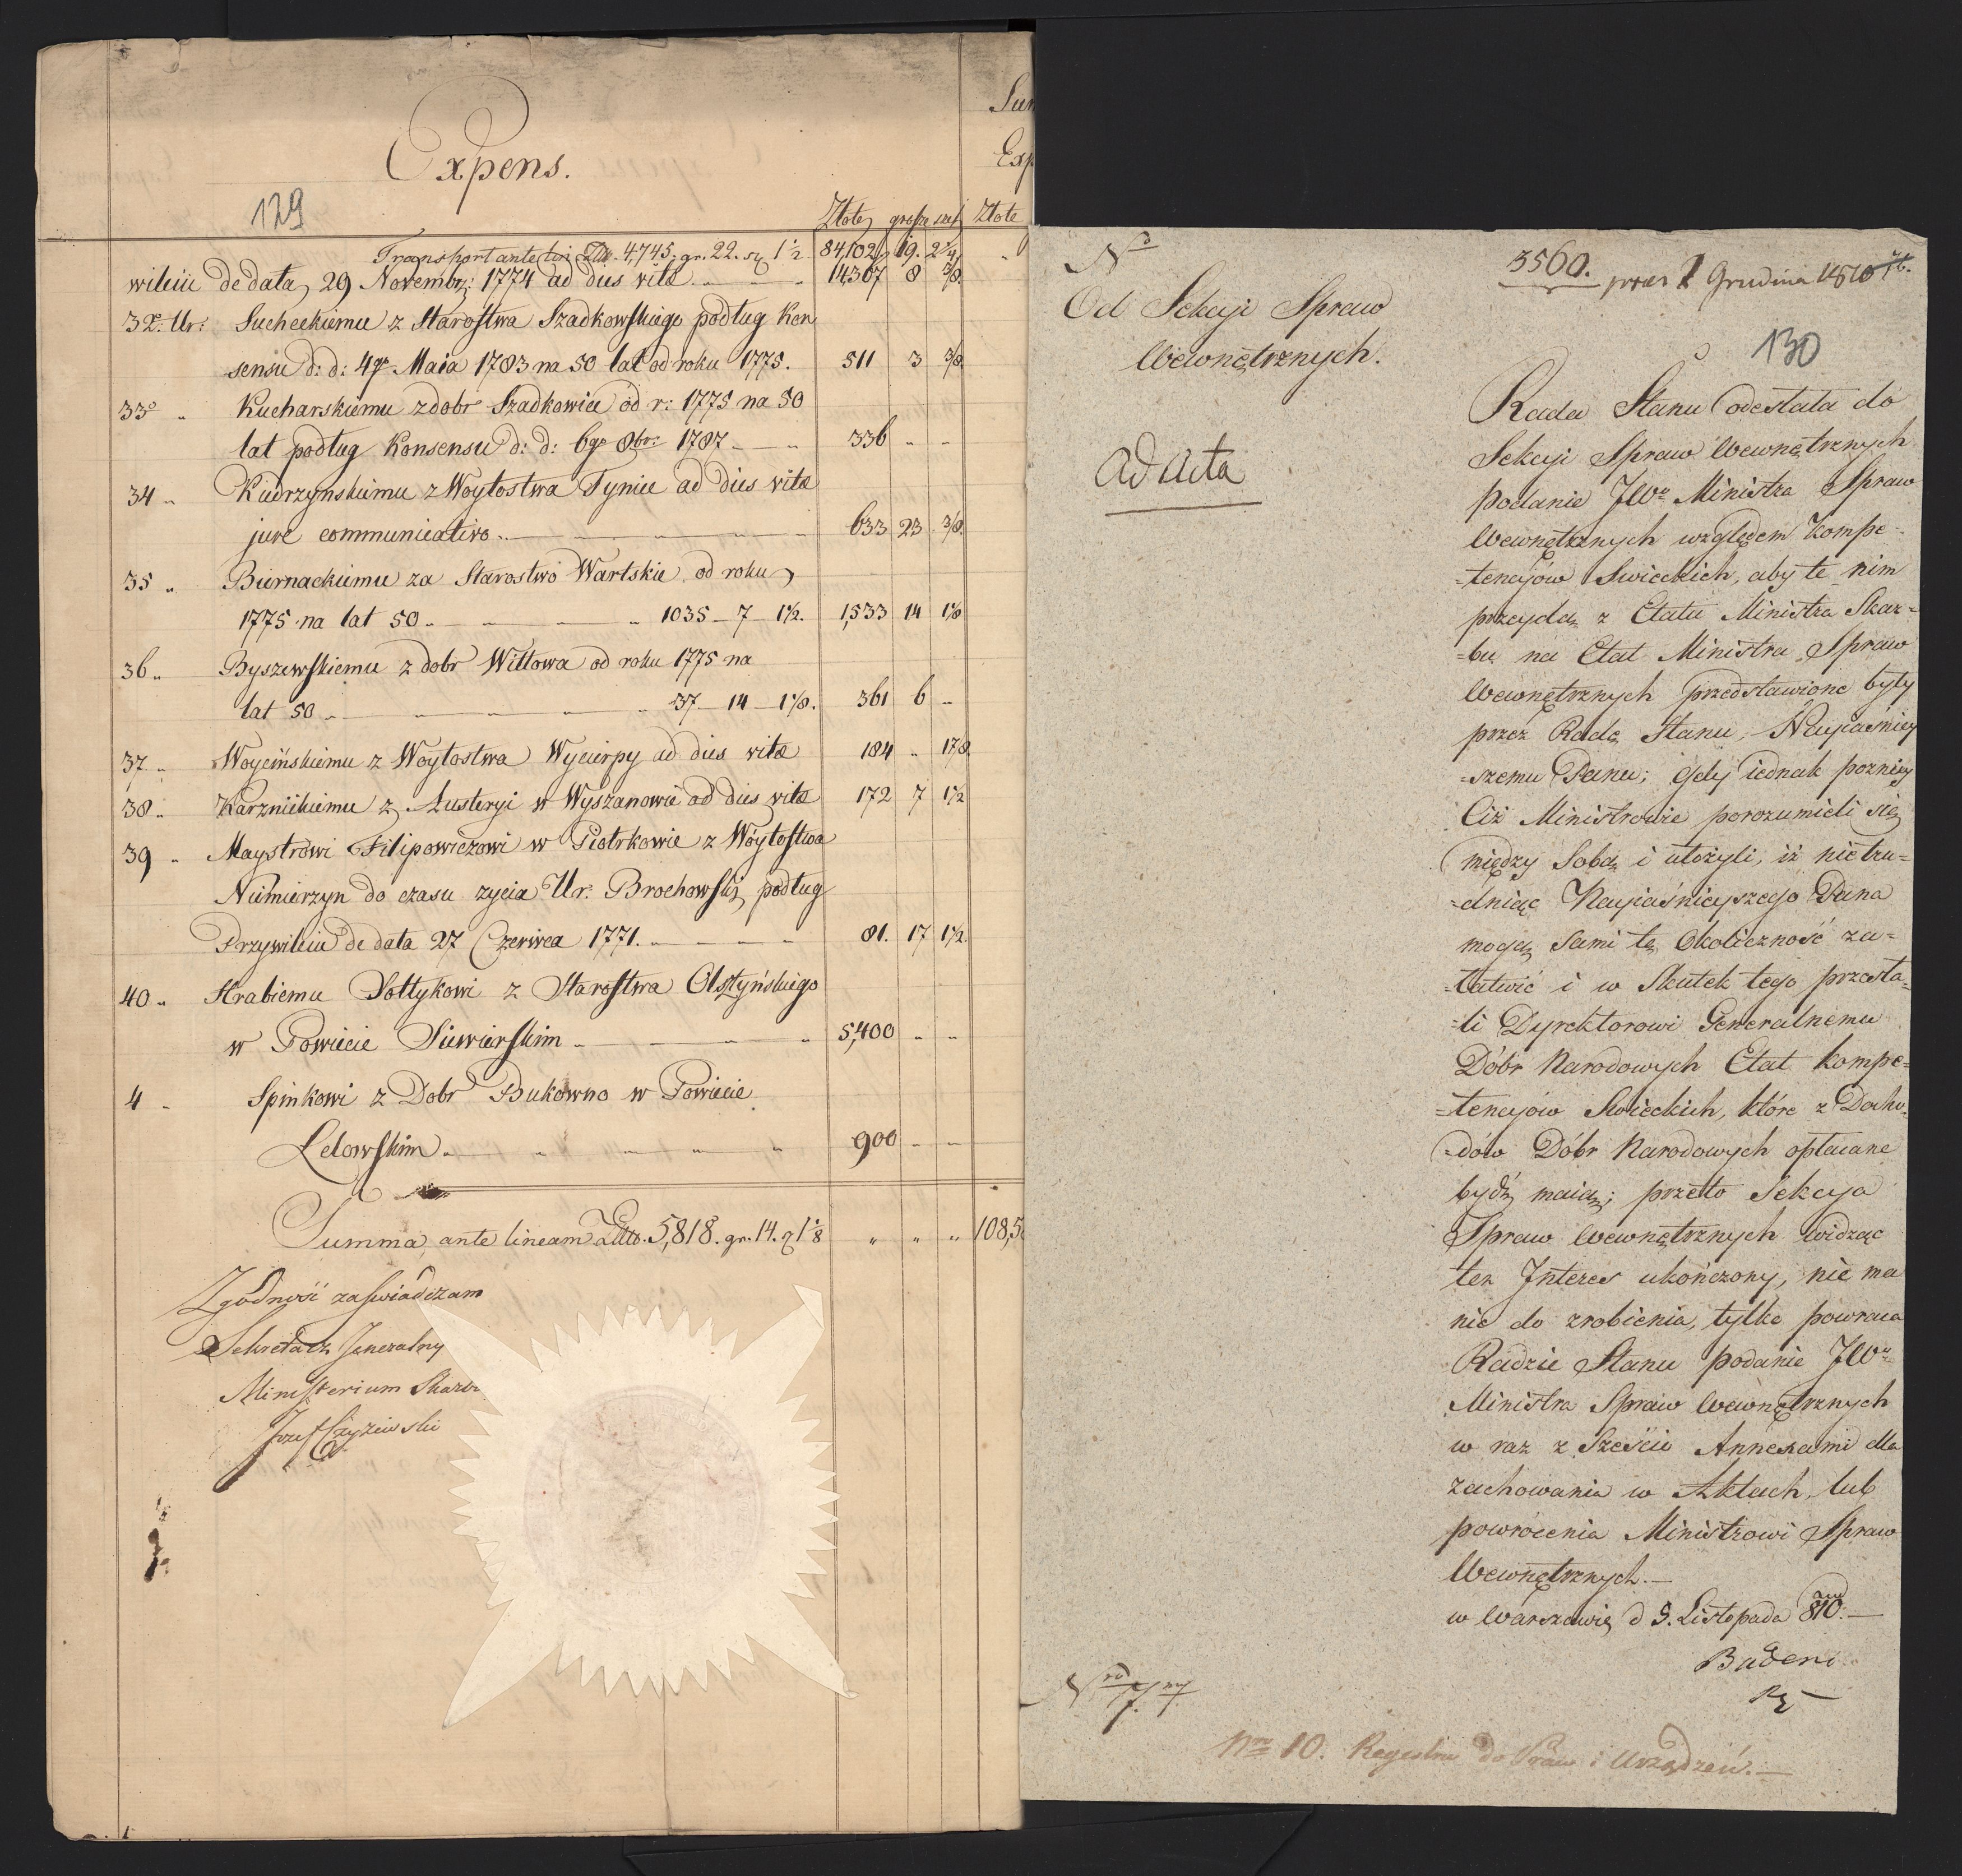 Sum
Expens.
Exp
129
Złote grosze szel Złote
Transport ante lin Złt. 4,745, gr. 22. sz 1 1/2 84,102 19. 2 1/4
wileiu de data 29 Novembr: 1774 ad dies vitæ 14,367 8 3/8
32. Ur: Sucheckiemu z Starostwa Szadkowskiego podług Kon
sensu d: d: 4go Maia 1783 na 50 lat od roku 1775. 511 3 3/8
33 „ Kucharskiemu z dobr Szadkowice od r: 1775 na 50
lat podług Konsensu d: d: 6go 8br: 1787 336 „ „
34 „ Kudrzynskiemu z Woytostwa Tynice ad dies vitæ
jure communicativo 633 23 3/8
35 „ Biernackiemu za Starostwo Wartskie od roku
1775 na lat 50 „ 1035 – 7 – 1 1/2. 1,533 14 1 1/8
36 „ Byszewskiemu z dobr Wittowa od roku 1775 na
lat 50 „ 37 – 14 – 1 7/8. 361 6 „
37 „ Woycińskiemu z Woytostwa Wycierpy ad dies vitæ 184 „ 1 7/8
38 „ Karznickiemu z Austeryi w Wyszanowie ad dies vitæ 172 7 1 1/2
39 „ Maystrowi Filipowiczowi w Piotrkowie z Wóytostwa
Niemierzyn do czasu zycia Ur. Brochowski podług
Przywileiu de data 27 Czerwca 1771. 81. 17 1 1/2.
40 „ Hrabiemu Sołtykowi z Starostwa Olsztyńskiego
w Powiecie Siewierskim 5,400 „ „
4 „ Spinkowi z Dobr Bukowno w Powiecie
Lelowskim 900 „ „
Summa ante lineam Złto. 5,818. gr. 14. 1 1/8 „ „ „ 108,5
Zgodność zaswiadczam
Sekretarz Jeneralny
Ministerium Skarbu
Jozef Czyżewski
Nro
3560. pras 1 Grudnia 1810
Od Sekcyi Spraw
Wewnętrznych.
130
ad acta
Rada Stanu odesłała do
Sekcyi Spraw Wewnętrznych
podanie JWo Ministra Spraw
Wewnętrznych względem Kompe-
=tencyiów Swieckich, aby te nim
przeydą z Etatu Ministra Skar=
=bu na Etat Ministra Spraw
Wewnętrznych przedstawione były
przez Radę Stanu, Nayiaśniey
=szemu Panu; gdy iednak pozniey
Ciż Ministrowie porozumieli się
między Sobą i ułożyli, iż nie tru=
=dniąc Nayiaśnieyszego Pana
mogą Sami tę Okoliczność za=
=łatwić i w Skutek tego przesła=
=li Dyrektorowi Generalnemu
Dóbr Narodowych Etat kompe=
=tencyiów Swieckich, które z Docho-
=dów Dóbr Narodowych opłacane
bydź maią; przeto Sekcya
Spraw Wewnętrznych widząc
ten Interes ukończony, nie ma
nic do zrobienia, tylko powraca
Radzie Stanu podanie JWo
Ministra Spraw Wewnętrznych
w raz z Sześcio Annexami dla
zachowania w Aktach, lub
powrócenia Ministrowi Spraw
Wewnętrznych.—
w Warszawie d 5. Listopada 810.—
Badeni
Nro 10. Regestru do Praw i Urządzeń.—